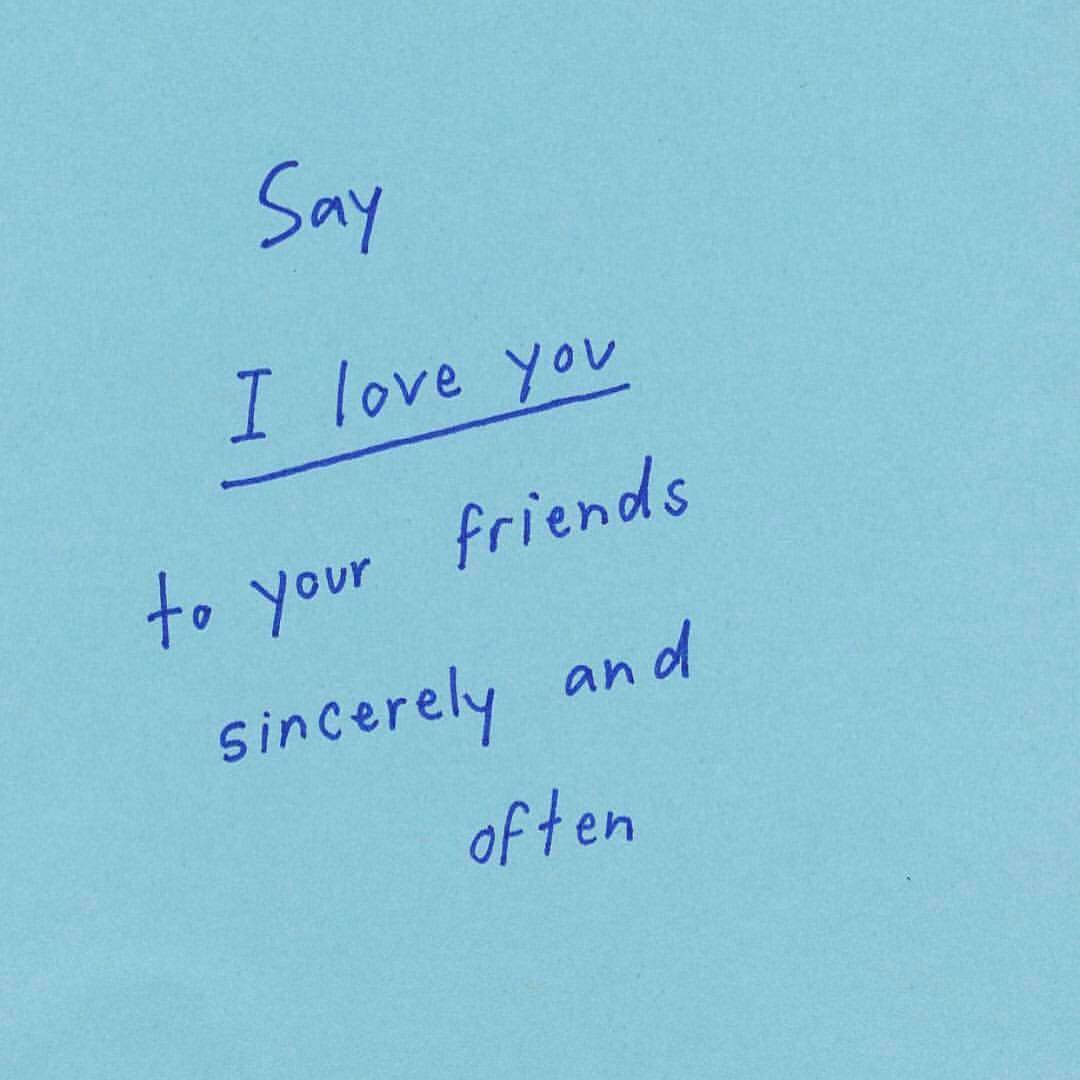 Say
I love you
to your friends
sincerely and
often